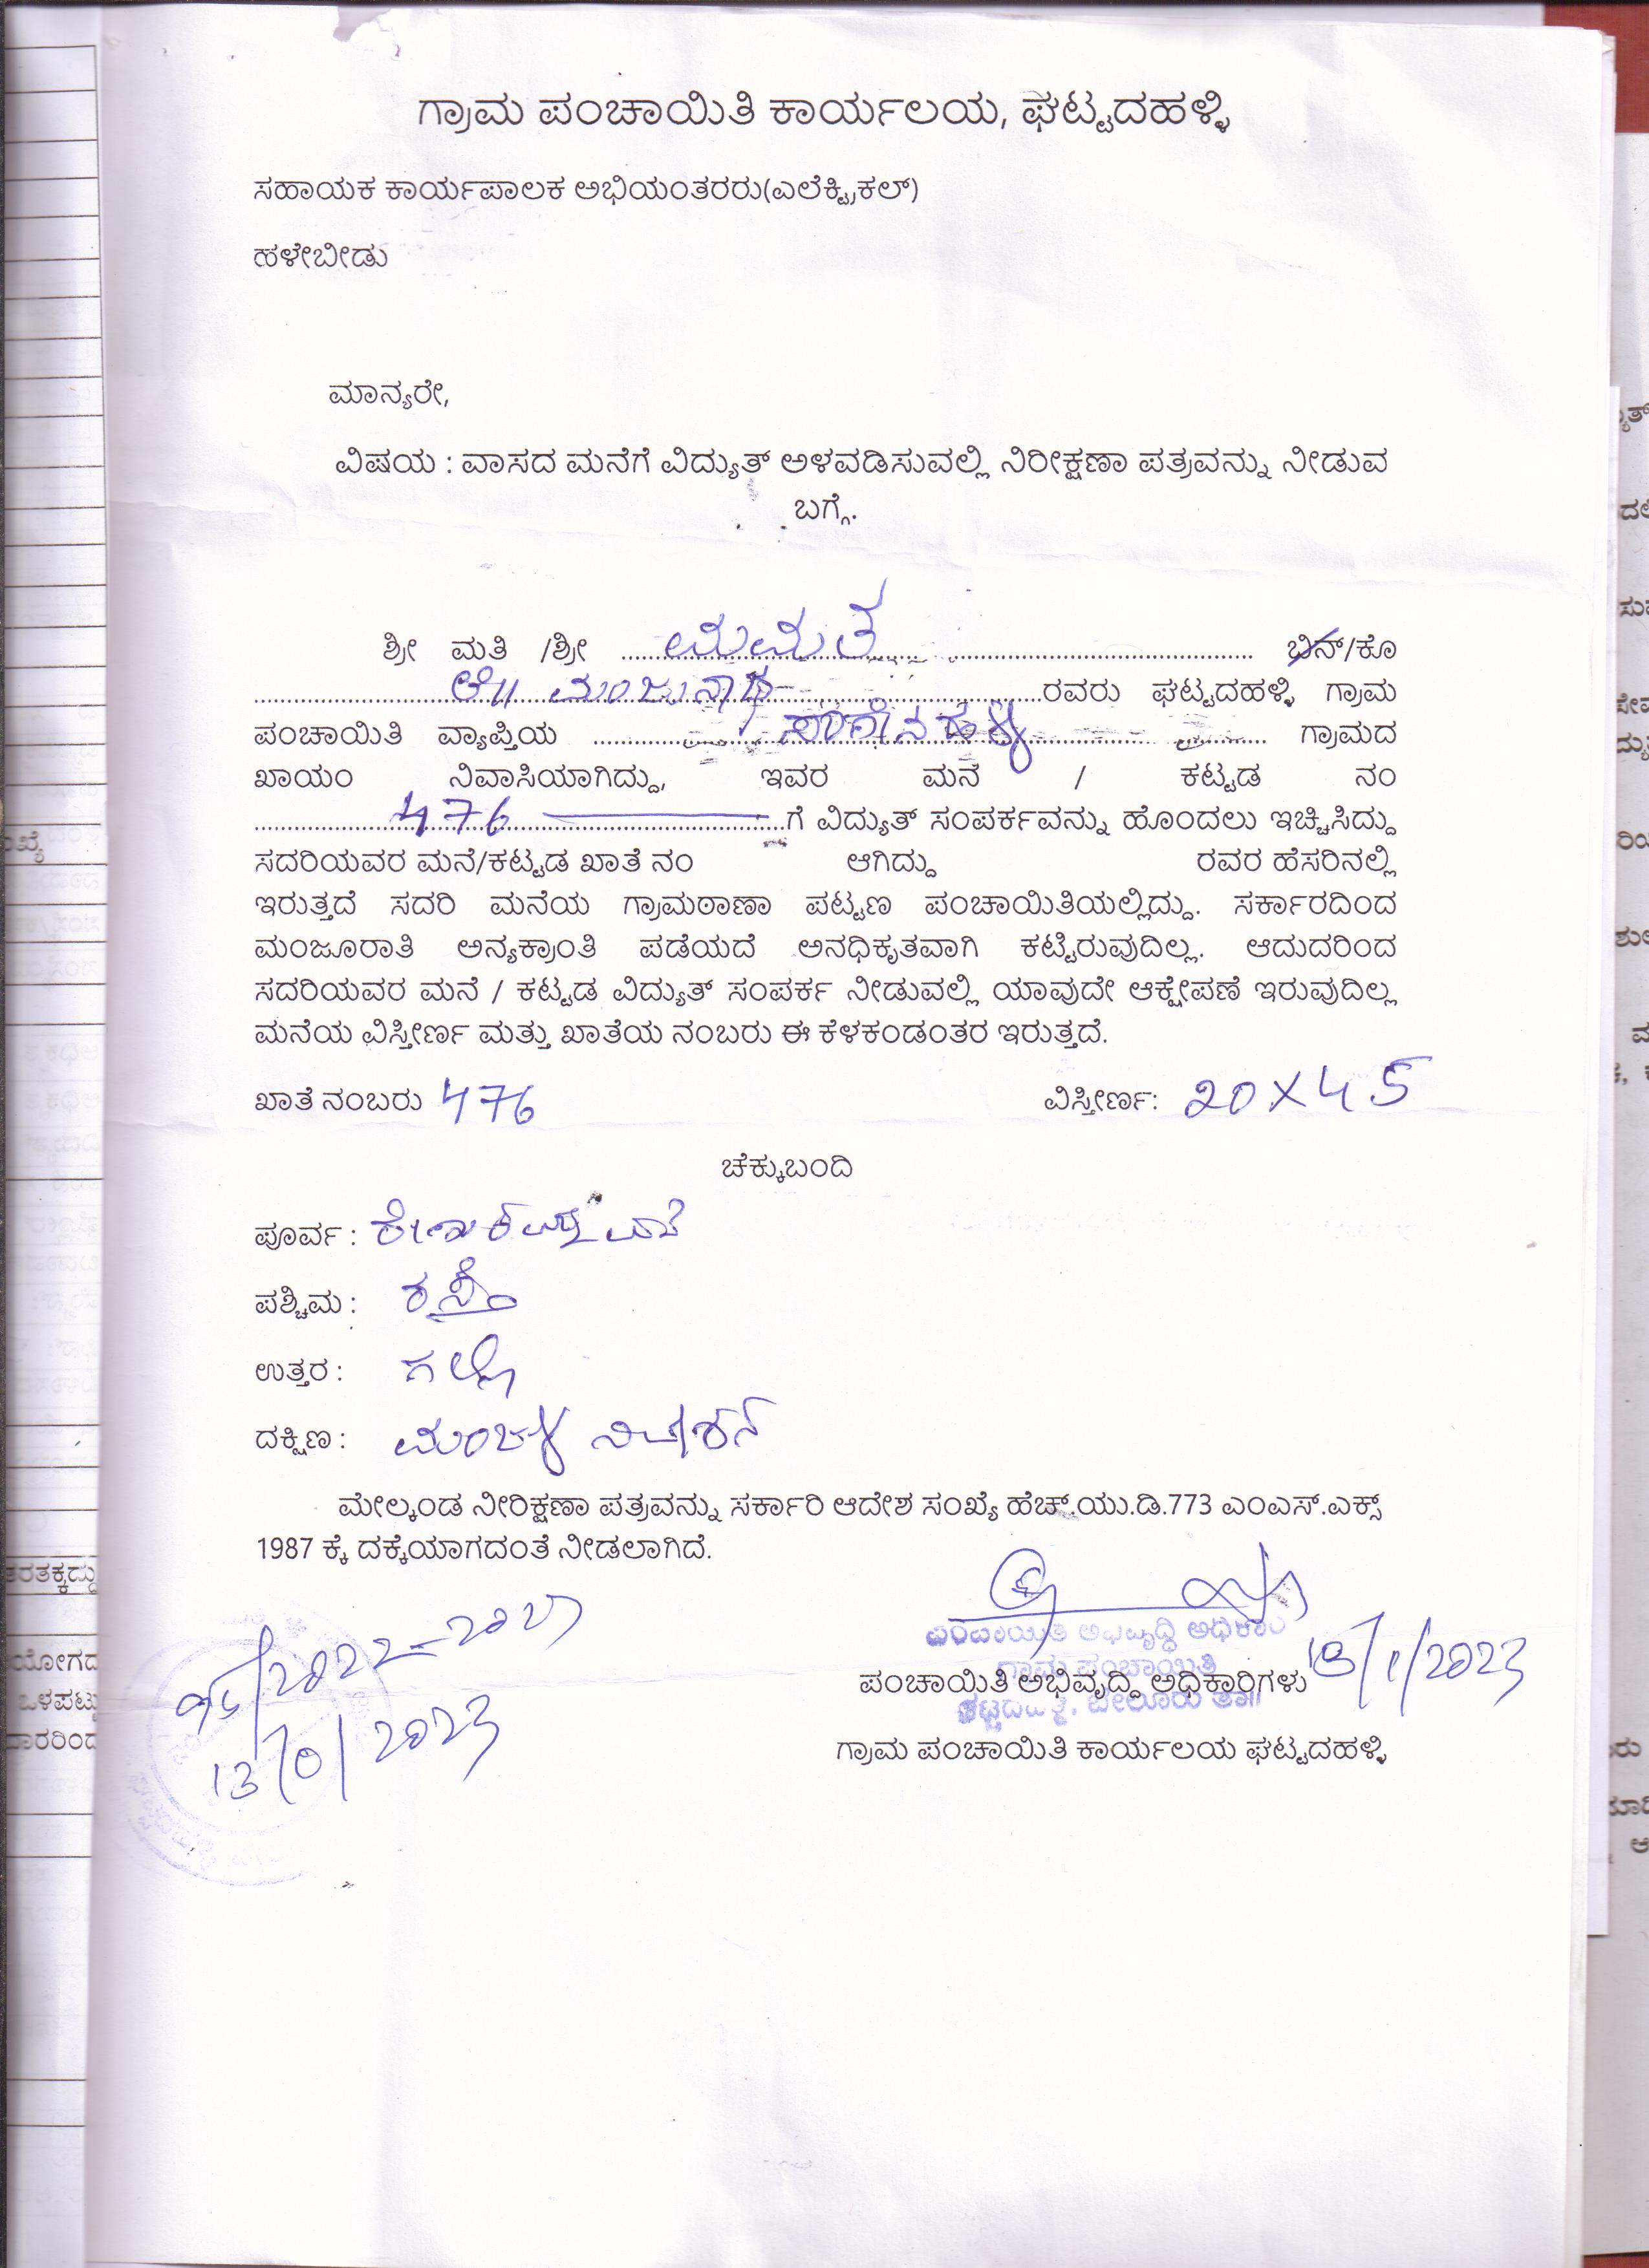 ಗ್ರಾಮ ಪಂಚಾಯಿತಿ ಕಾರ್ಯಲಯ, ಘಟ್ಟದಹಳ್ಳಿ
ಸಹಾಯಕ ಕಾರ್ಯಪಾಲಕ ಅಭಿಯಂತರರು(ಎಲೆಕ್ಟ್ರಿಕಲ್)
ಹಳೇಬೀಡು
ಮಾನ್ಯರೇ,
ವಿಷಯ : ವಾಸದ ಮನೆಗೆ ವಿದ್ಯುತ್ ಅಳವಡಿಸುವಲ್ಲಿ ನಿರೀಕ್ಷಣಾ ಪತ್ರವನ್ನು ನೀಡುವ
ಬಗ್ಗೆ.
ಶ್ರೀ ಮತಿ /ಶ್ರೀ ಮಮತ ಬಿನ್/ಕೊ
ಮಂಜುನಾಥ ರವರು ಘಟ್ಟದಹಳ್ಳಿ ಗ್ರಾಮ
ಪಂಚಾಯಿತಿ ವ್ಯಾಪ್ತಿಯ ಗ್ರಾಮದ
ಖಾಯಂ ನಿವಾಸಿಯಾಗಿದ್ದು, ಇವರ ಮನೆ / ಕಟ್ಟಡ ನಂ
476 ಗೆ ವಿದ್ಯುತ್ ಸಂಪರ್ಕವನ್ನು ಹೊಂದಲು ಇಚ್ಚಿಸಿದ್ದು
ಸದರಿಯವರ ಮನೆ/ಕಟ್ಟಡ ಖಾತೆ ನಂ ಆಗಿದ್ದು ರವರ ಹೆಸರಿನಲ್ಲಿ
ಇರುತ್ತದೆ ಸದರಿ ಮನೆಯ ಗ್ರಾಮಠಾಣಾ ಪಟ್ಟಣ ಪಂಚಾಯಿತಿಯಲ್ಲಿದ್ದು. ಸರ್ಕಾರದಿಂದ
ಮಂಜೂರಾತಿ ಅನ್ಯಕ್ರಾಂತಿ ಪಡೆಯದೆ ಅನಧಿಕೃತವಾಗಿ ಕಟ್ಟಿರುವುದಿಲ್ಲ. ಆದುದರಿಂದ
ಸದರಿಯವರ ಮನೆ / ಕಟ್ಟಡ ವಿದ್ಯುತ್ ಸಂಪರ್ಕ ನೀಡುವಲ್ಲಿ ಯಾವುದೇ ಆಕ್ಷೇಪಣೆ ಇರುವುದಿಲ್ಲ
ಮನೆಯ ವಿಸ್ತೀರ್ಣ ಮತ್ತು ಖಾತೆಯ ನಂಬರು ಈ ಕೆಳಕಂಡಂತರ ಇರುತ್ತದೆ.
ಖಾತೆ ನಂಬರು 476 ವಿಸ್ತೀರ್ಣ: 20X45
ಚೆಕ್ಕುಬಂದಿ
ಪೂರ್ವ :
ಪಶ್ಚಿಮ :
ಉತ್ತರ : ಗಲ್ಲಿ
ದಕ್ಷಿಣ :
ಮೇಲ್ಕಂಡ ನೀರಿಕ್ಷಣಾ ಪತ್ರವನ್ನು ಸರ್ಕಾರಿ ಆದೇಶ ಸಂಖ್ಯೆ ಹೆಚ್.ಯು.ಡಿ.773 ಎಂಎಸ್.ಎಕ್ಸ್
1987 ಕ್ಕೆ ದಕ್ಕೆಯಾಗದಂತೆ ನೀಡಲಾಗಿದೆ.
ಪಂಚಾಯಿತಿ ಅಭಿವೃದ್ಧಿ ಅಧಿಕಾರಿ
ಗ್ರಾಮ ಪಂಚಾಯಿತಿ
ಪಂಚಾಯಿತಿ ಅಭಿವೃದ್ದಿ ಅಧಿಕಾರಿಗಳು
ಬೇಲೂರು ತಾ||
ಗ್ರಾಮ ಪಂಚಾಯಿತಿ ಕಾರ್ಯಲಯ ಘಟ್ಟದಹಳ್ಳಿ